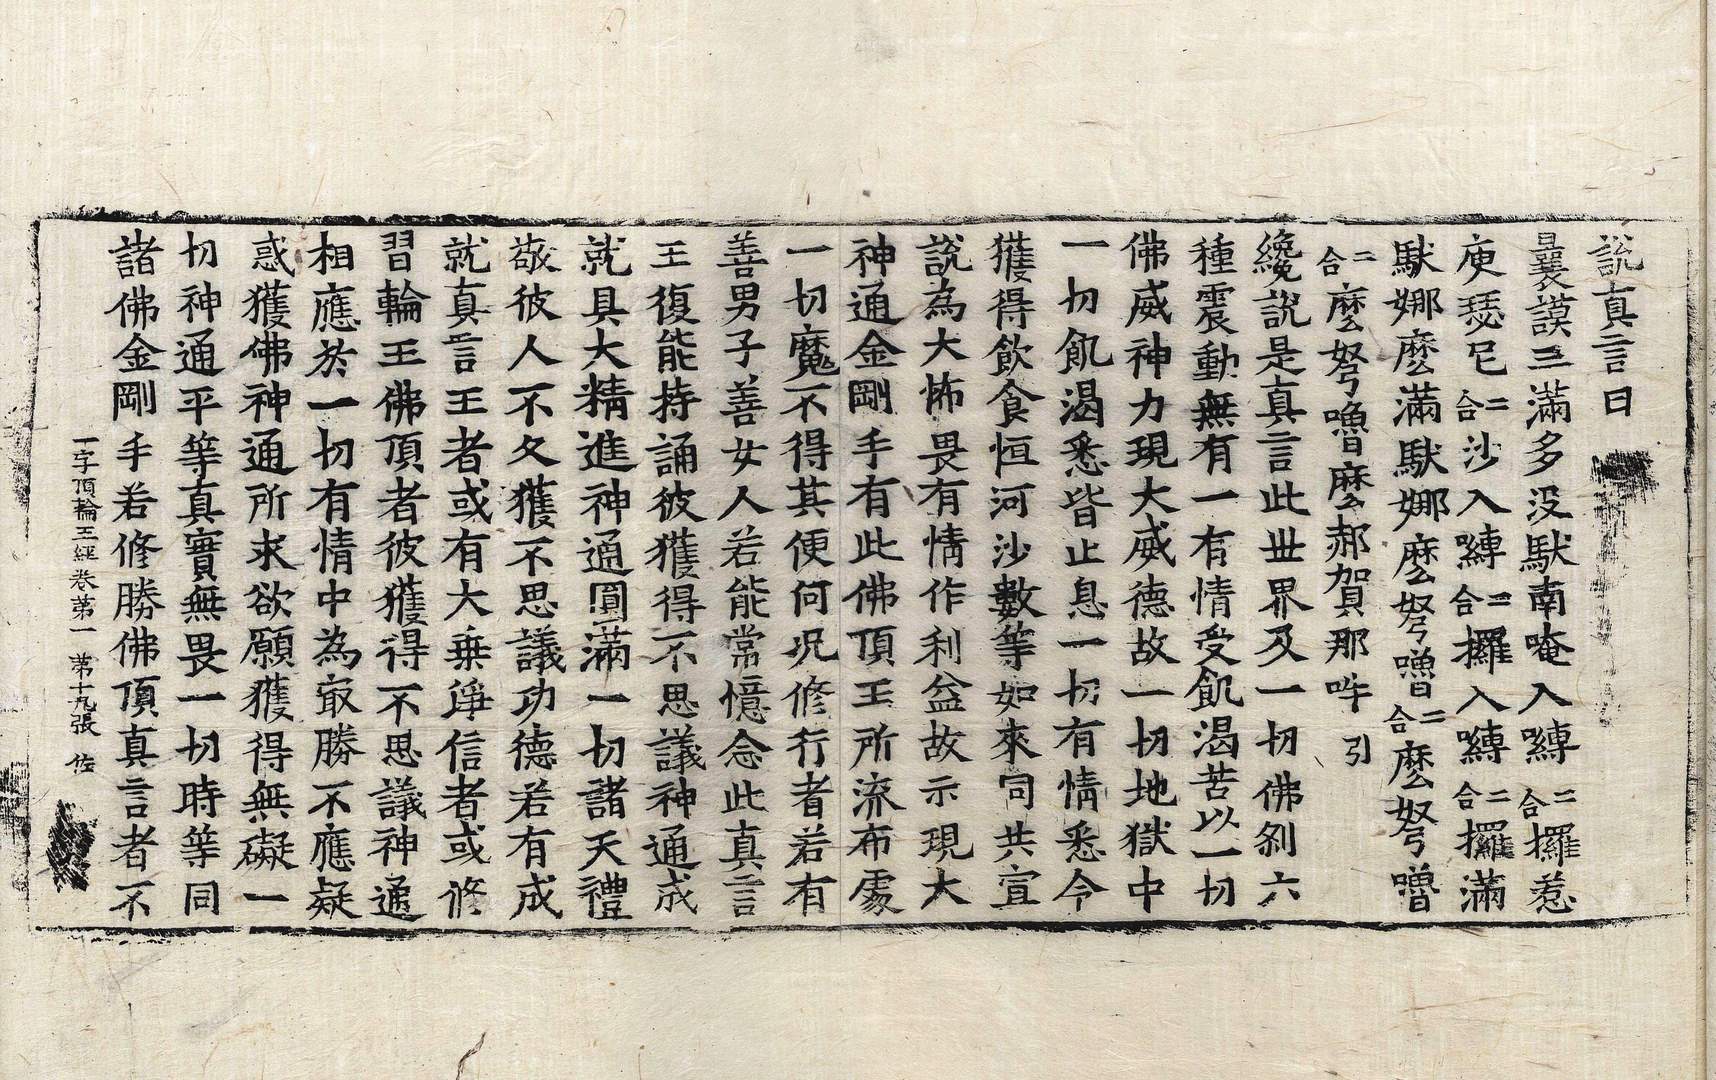 說真言曰
曩謨三滿多没馱南唵入嚩二合囉惹
庾瑟抳二合沙入嚩二合攞入嚩二合攞滿
馱娜麽滿馱娜麽努嚕二合麽努嚕
二合麽努嚕麽郝賀那吽引
纔說是真言此世界及一切佛刹六
種震動無有一有情受飢渴苦以一切
佛威神力現大威德故一切地獄中
一切飢渴悉皆止息一切有情悉令
獲得飲食恒河沙數等如來同共宣
說為大怖畏有情作利益故示現大
神通金剛手有此佛頂王所流布處
一切魔不得其便何況修行者若有
善男子善女人若能常憶念此真言
王復能持誦彼獲得不思議神通成
就具大精進神通圓滿一切諸天禮
敬彼人不久獲不思議功德若有成
就真言王者或有大乗淨信者或修
習輪王佛頂者彼獲得不思議神通
相應於一切有情中為㝡勝不應疑
惑獲佛神通所求欲願獲得無礙一
切神通平等真實無畏一切時等同
諸佛金剛手若修勝佛頂真言者不
一字頂輪王經卷第一 第十九張 佐